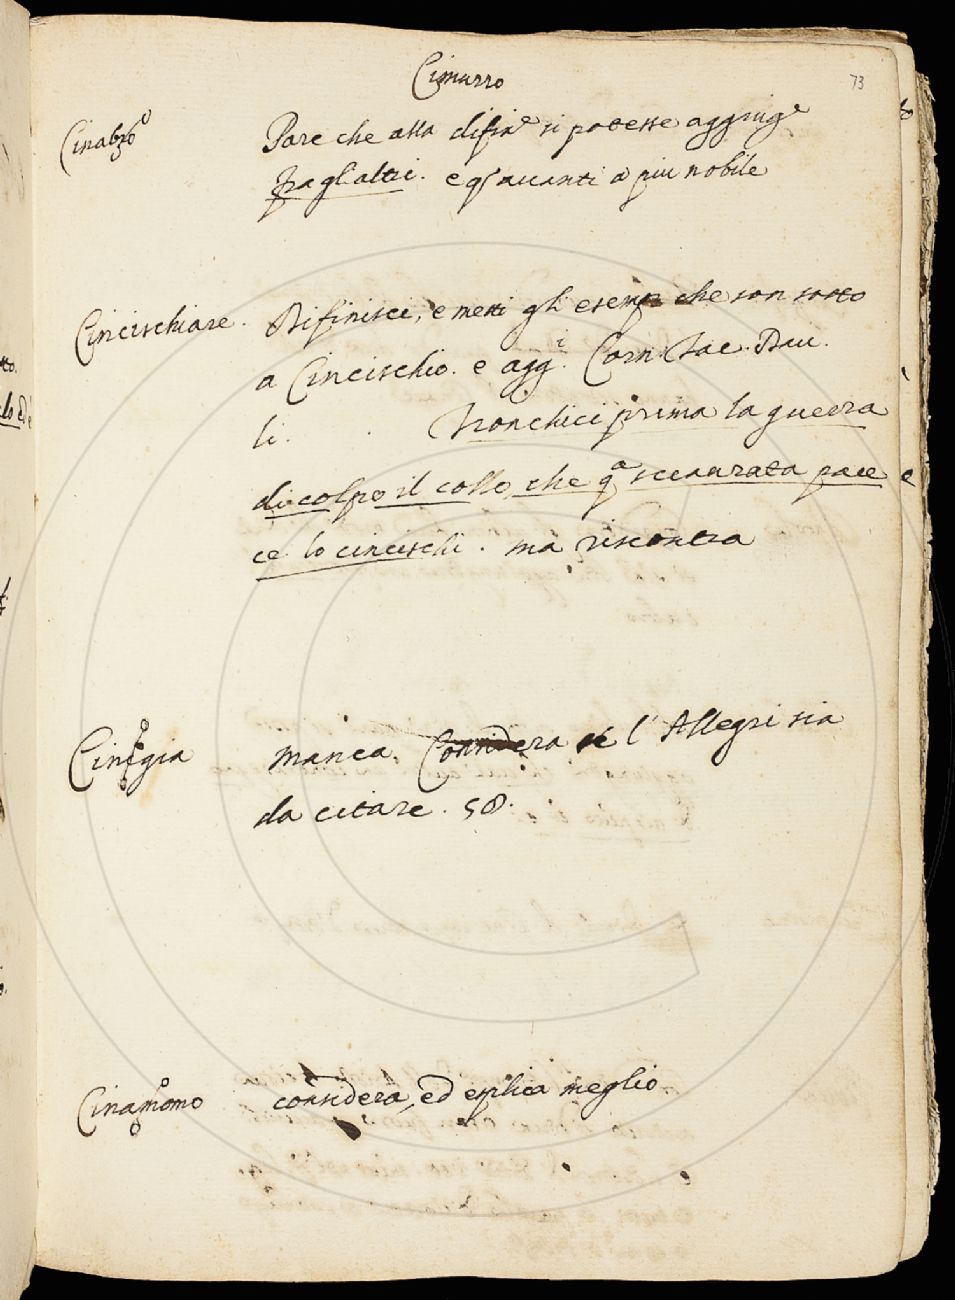 Cimurro
73
Cinabro Pare che alla difine si potesse aggiuge
fragl'altri. e qsi avanti a piu nobile
Cincischiare. Rifinisci, e metti gli esempi che son sotto
a Cincischio. e aggi. Corn. Tac. Dav.
li. Tronchici prima la guerra
di colpo il collo, che qa sceaurata pace
ce lo cincischi. ma riscontra
manca. Considera se l'Allegri sia
da citare. 58.
Cinamomo considera, ed esplica meglio